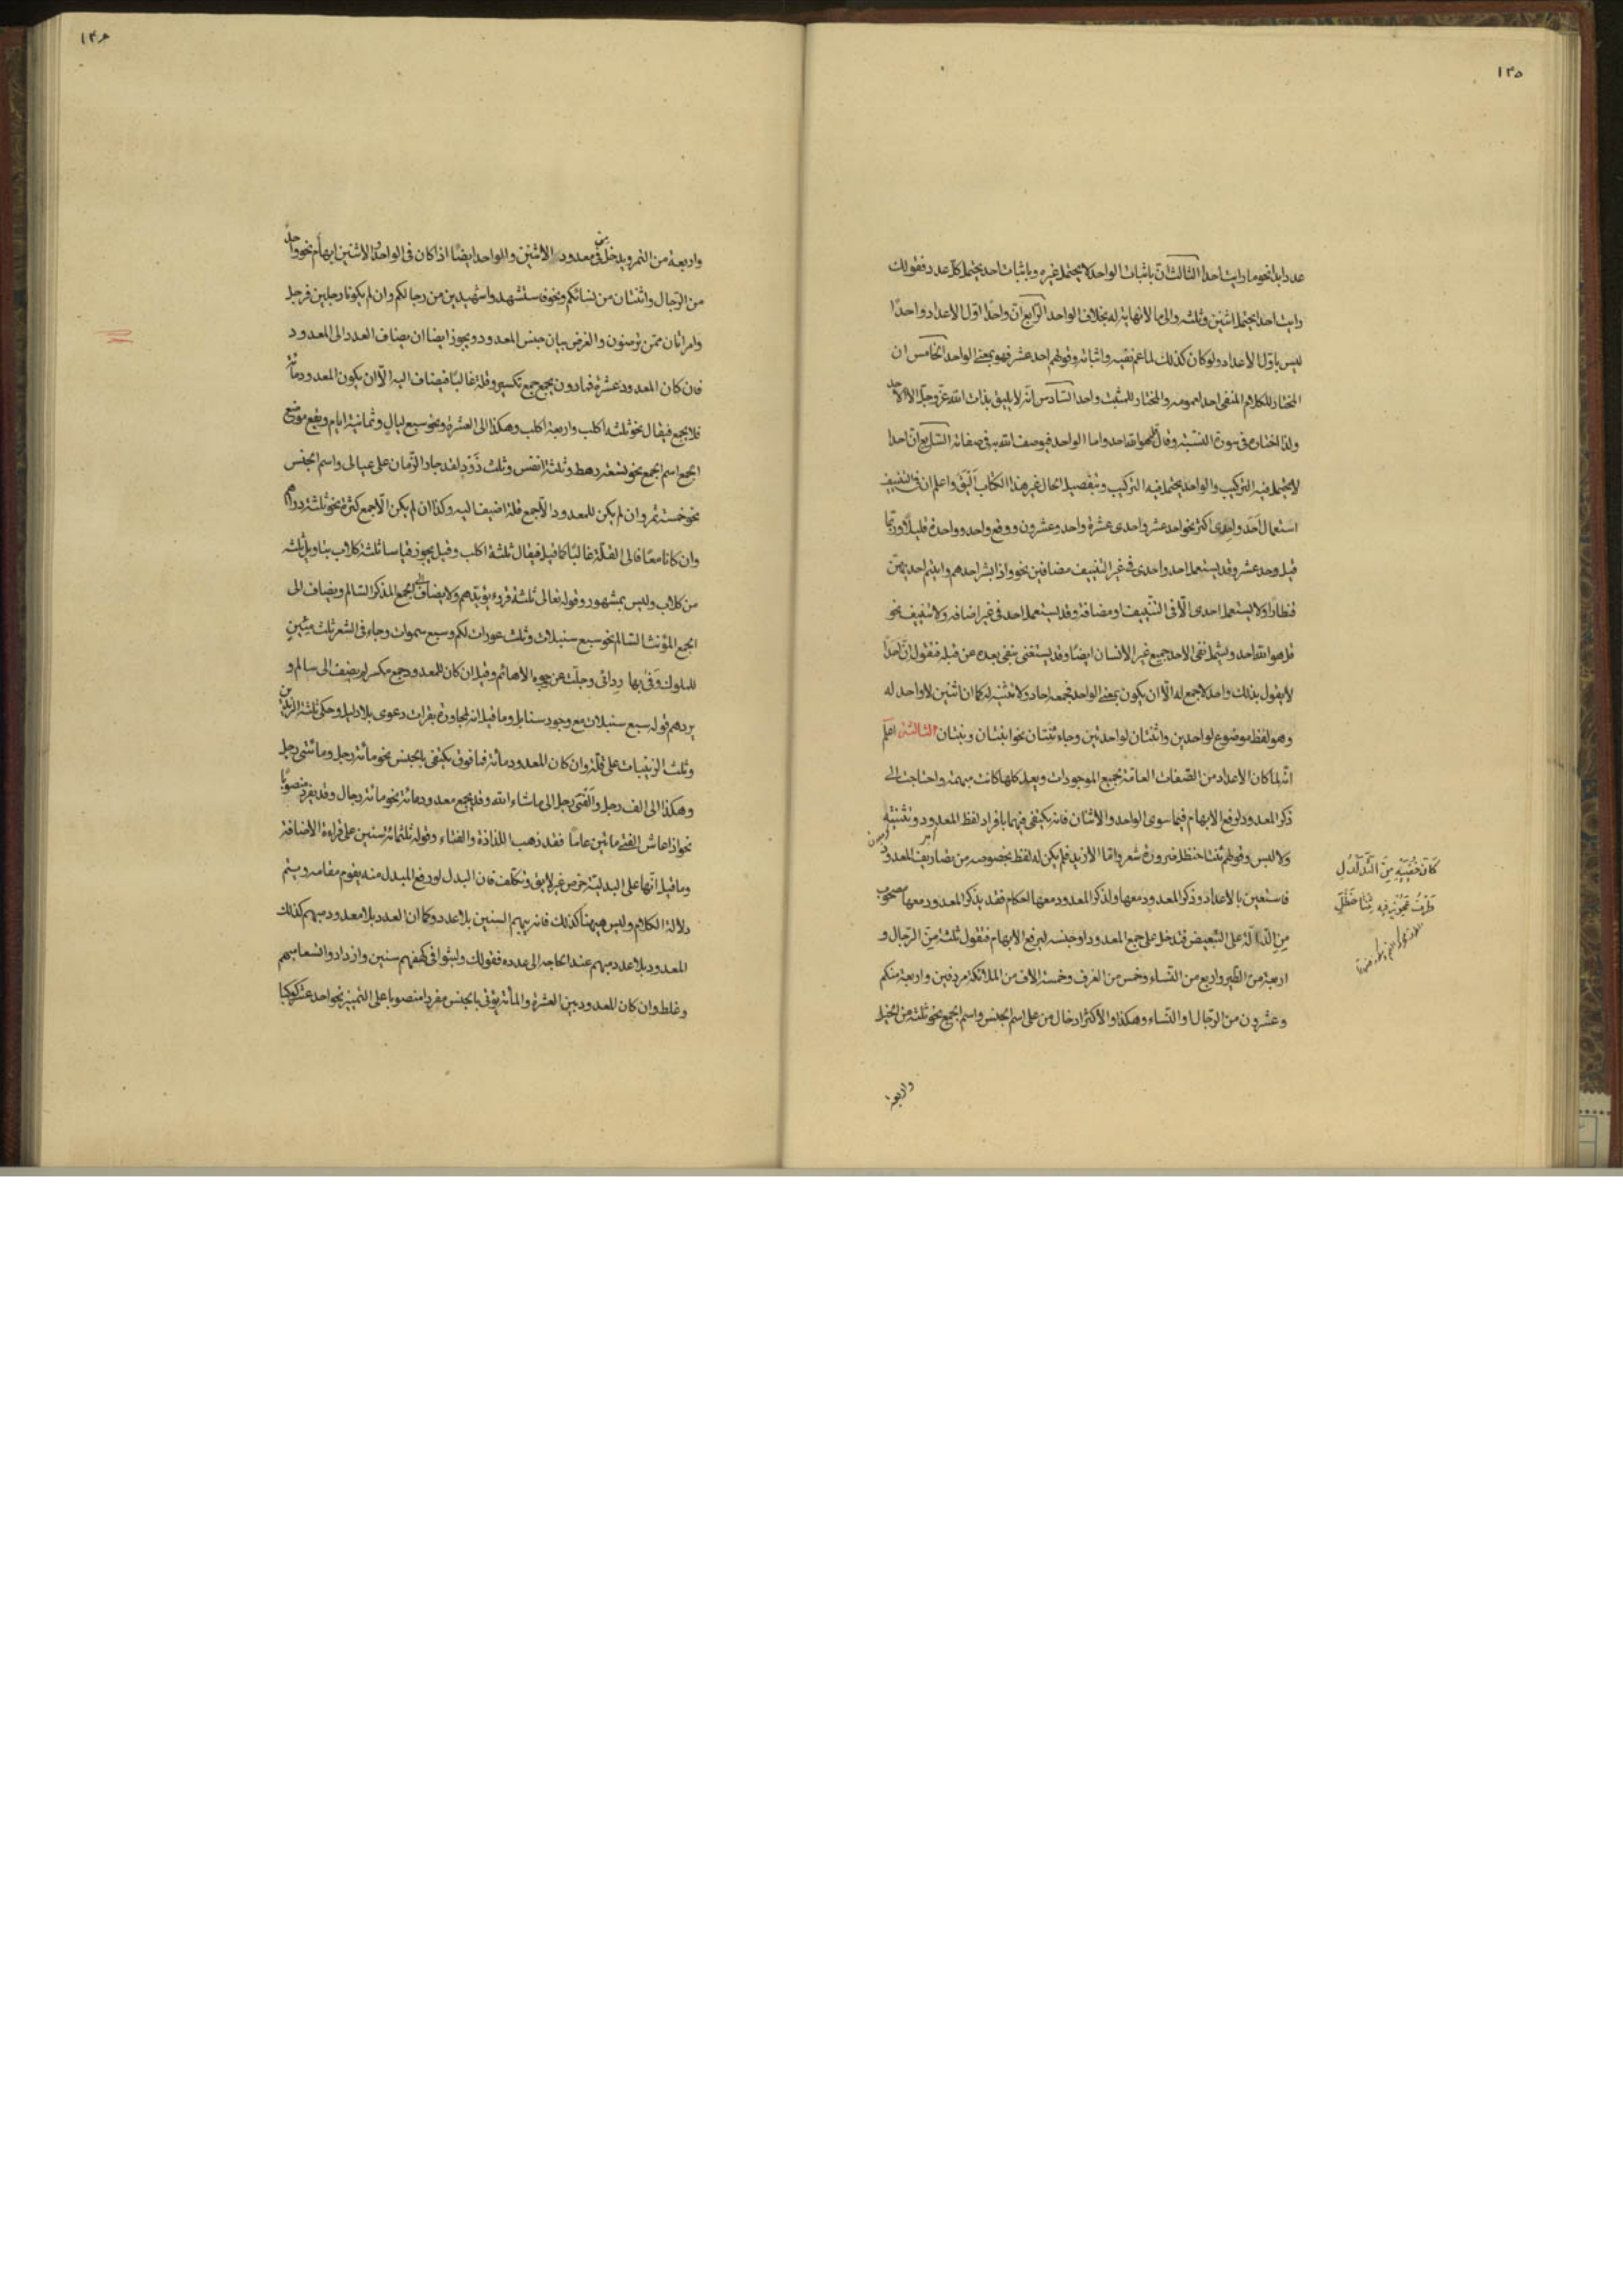 ١٣٥
عدد ابدا نحو ما رايت احدا الثالث انّ باثبات الواحد لا يحتمل غيره وباثبات احد يحتمل كل عدد فقولك
رايت احدا يحتمل اثنين وثلثه والى ما لا نهاية له بخلاف الواحد الرابع انّ واحدًا اوّل الاعداد واحدًا
ليس باوّل الاعداد ولو كان كذلك لما عم نفيه واثباته وقولهم احد عشر فهو بمعنى الواحد الخامس ان
المختار للكلام المنفى احد لعمومه والمختار للمثبت واحد السّادس انّه لا يليق بذات الله عزّ وجلّ الّا الاحد
ولذا اختاره فى سورة النسبة وقال قل هو الله احد واما الواحد فيوصف الله به فى صفاته السّابع ان احدا
لا يحتمل فيه التركيب والواحد يحتمل فيه التركيب وتفصيل الحال غير هذا الكتاب اليق واعلم ان فى التنييف
استعمال اَحَد واِحدى اكثر نحو احد عشر واحدى عشرة واحد وعشرون ووقع واحد وواحدة قليلًا وربّما
قيل وحد عشر وقد يستعمل احد واحدى فى غير التنييف مضافين نحو واذا بشر احدهم واتيتم احديهنّ
قنطارًا ولا يستعمل احدى الّا فى التّنييف او مضافة وقد يستعمل احد فى غير اضافه ولا تنييف نحو
قل هو الله احد ويشمل نفى الاحد جميع غير الانسان ايضًا وقد يستغنى بنفى بعده عن قبله فتقول انّ اَحَدًا
لا يقول بذلك واحد لا جمع له الّا ان يكون بمعنى الواحد فجمعه احاد ولا تثنيه له كما ان اثنين لا واحد له
وهو لفظ موضوع لواحدين واثنتان لواحدتين وجاء ثنتان نحو ابنتان وبنتان الثالثة اعلم
انّه لمّا كان الاعداد من الصّفات العامّة لجميع الموجودات ويعدّ كلها كانت مبهمة واحتاجت الى
ذكر المعدود لرفع الابهام فيما سوى الواحد والاثنان فانه يكتفى فيهما بافراد لفظ المعدود وتثنيته
ولا لبس وقولهم ثنتا حنظل ضرورة شعر وامّا الازيد فلم يكن له لفظ بخصوصه من تصاريف المعدود
فاستعين بالاعداد وذكر المعدود معها ولذكر المعدود معها احكام فقد يذكر المعدود معها مصحوب
مِنِ الدّالّة على التّبعيض فتدخل على جمع المعدود او جنسه ليرفع الابهام فتقول ثلثة من الرّجال و
اربعة من الطّير واربع من النّساء وخمس من الغرف وخمسة الاف من الملائكة مردفين واربعة منكم
وعشرون من الرّجال او النّساء وهكذا والاكثر ادخال من على اسم الجنس واسم الجمع نحو ثلثة من الخيل
واربعة
كَأَنَّ خُصْيَيْهِ مِنَ التَّدَلْدُلِ
ظَرْفُ عَجُوزٍ فِيهِ ثِنْتَا حَنْظَلِ
١٣٦
واربعة من التمر ويدخل فى معدود الاثنين والواحد ايضًا اذا كان فى الواحد والاثنين ابهام نحو واحد
من الرّجال واثنتان من نسائكم ونحو فاستشهدوا شهيدين من رجالكم وان لم يكونا رجلين فرجل
وامراتان ممّن ترضون والغرض بيان جنس المعدود ويجوز ايضا ان يضاف العدد الى المعدود
فان كان المعدود عشرة فما دون يجمع جمع تكسير وقلة غالبًا فيضاف اليه الّا ان يكون المعدود مائة
فلا يجمع فيقال نحو ثلثه اكلب واربعة اكلب وهكذا الى العشرة ونحو سبع ليال وثمانية ايام ويقع موضع
الجمع اسم الجمع نحو تسعة رهط وثلثة انفس وثلث ذَوْد لقد جار الزّمان على عيالى واسم الجنس
نحو خمسة تمر وان لم يكن للمعدود الّا جمع قلة اضيف اليه وكذا ان لم يكن الّا جمع كثرة نحو ثلثة دراهم
وان كانا معًا فالى القلّة غالبًا كما قيل فيقال ثلثة اكلب وقيل يجوز قياسا ثلثة كلاب بتاويل ثلثه
من كلاب وليس بمشهور وقوله تعالى ثلثة قروء يؤيّدهم ولا يضاف الى الجمع المذكّر السّالم ويضاف الى
الجمع المؤنث السّالم نحو سبع سنبلات وثلث عورات لكم وسبع سموات وجاء فى الشعر ثلث مِئين
للملوك وَفى بها ردائى وجلّت عن وجوه الاهاتم وقيل ان كان للمعدود جمع مكسر لم يضف الى سالم و
يردهم قوله سبع سنبلات مع وجود سنابل وما قيل انه لمجاورة بقرات دعوى بلا دليل وحكى ثلثة الزيدين
وثلث الزينبات على قلّة وان كان المعدود مائة فما فوق يكتفى بالجنس نحو مائة رجل ومائتى رجل
وهكذا الى الف رجل والفى رجل الى ما شاء الله وقد يجمع معدود مائة نحو مائة رجال وقد يفرد منصوبًا
نحو اذا عاش الفتى مائتين عامًا فقد ذهب اللذاذة والفتاء وقوله ثلثمائة سنين على قراءة الاضافة
وما قيل انّها على البدليّة خوض غير لايق وتكلّف فان البدل لو رفع المبدل منه يقوم مقامه ويتم
دلالة الكلام وليس هيهنا كذلك فانه يبهم السنين بلا عدد وكما ان العدد بلا معدود مبهم كذلك
المعدود بلا عدد مبهم عند الحاجه الى عدده فقولك ولبثوا فى كهفهم سنين وازدادوا تسعا مبهم
وغلط وان كان المعدود بين العشرة والمائة يؤتى بالجنس مفردا منصوبا على التميز نحو احد عشر كوكبًا